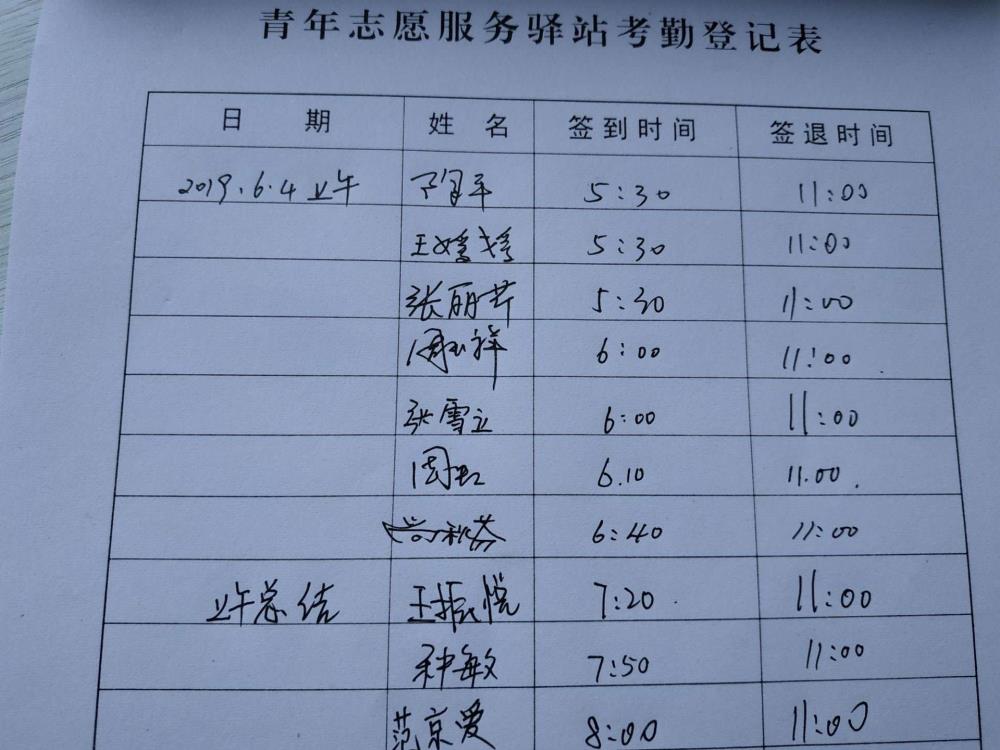 青年志愿服务驿站考勤登记表
日 期 姓 名 签到时间 签退时间
2019.6.4 上午 5:30 11:00
王婷婷 5:30 11:00
张丽芹 5:30 11:00
周玉祥 6:00 11:00
张雪立 6:00 11:00
周虹 6.10 11.00.
6:40 11:00
上午总结 王振悦 7:20 11:00
种敏 7:50 11:00
范京爱 8:00 11:00